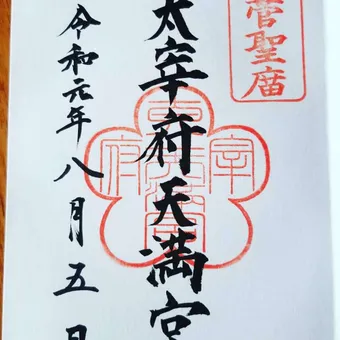 菅聖廟
太宰府天満宮
令和元年八月五日